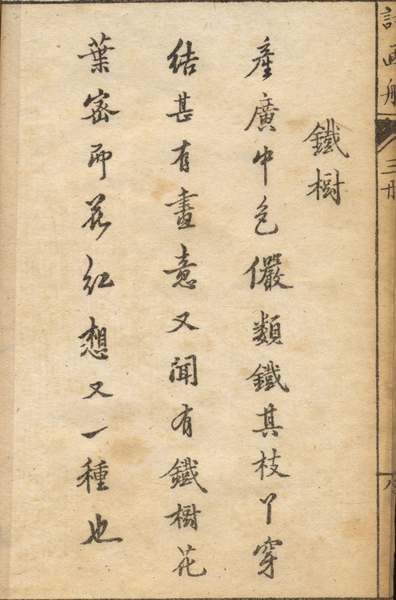 詩画舫
三廾
鐵樹
產廣中色儼類鐵其枝丫穿
結甚有畫意又聞有鐵樹花
葉密而花紅想又一種也